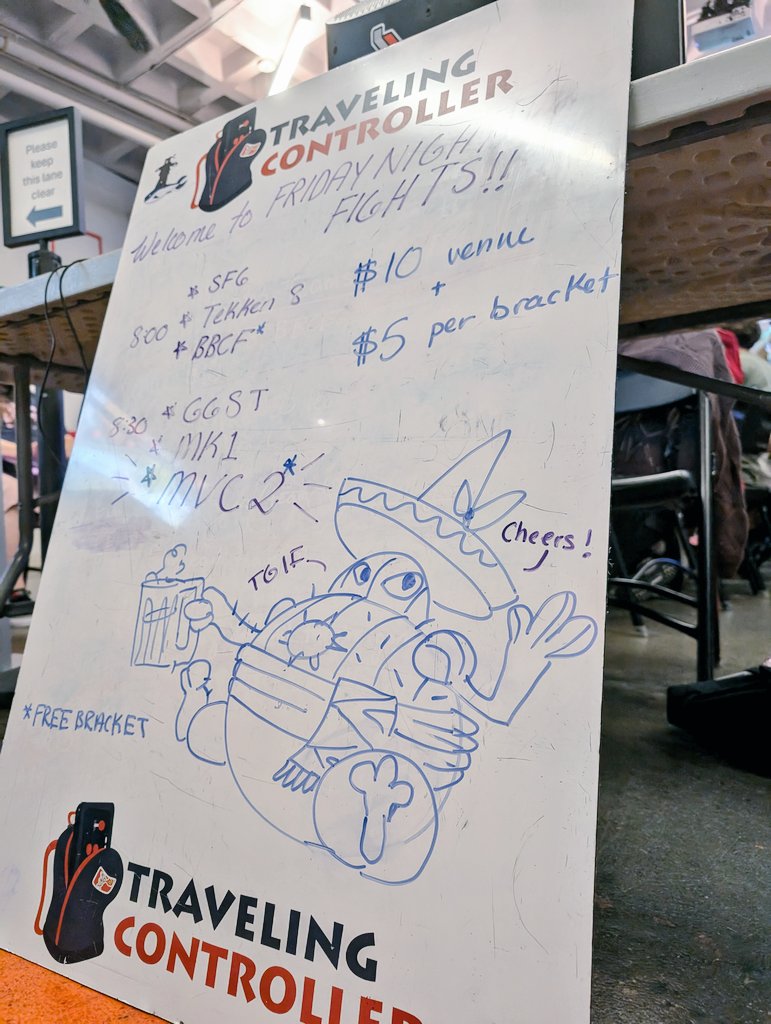 Please
keep
this lane
clear
TRAVELING
CONTROLLER
Welcome to FRIDAY NIGHT
FIGHTS!!
* SF6
8:00 * Tekken 8
* BBCF*
$10 venue
+
$5 per bracket
8:30 * GGST
* MK1
* MVC2*
Cheers!
TGIF
*FREE BRACKET
TRAVELING
CONTROLLER